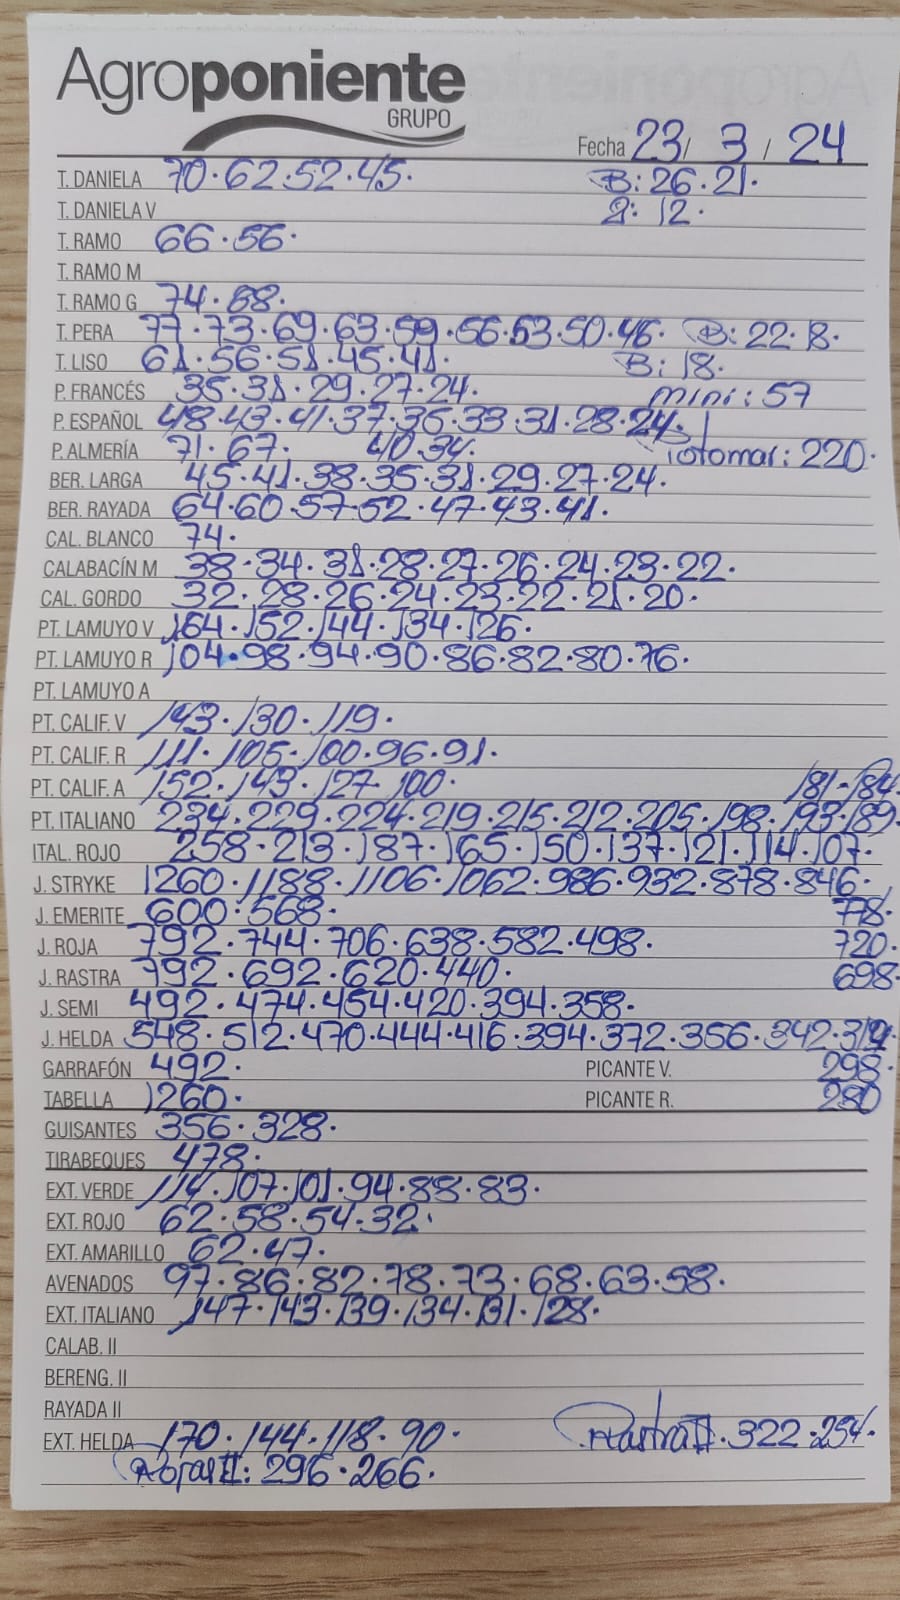 Agroponiente
GRUPO
Fecha 23/ 3 / 24
T. DANIELA 70·62·52·45· B: 26·21·
T. DANIELA V 2: 12·
T. RAMO 66·56·
T. RAMO M
T. RAMO G 74·68·
T. PERA 77·73·69·63·59·56·53·50·46· B: 22·18·
T. LISO 61·56·51·45·41· B: 18·
P. FRANCÉS 35·31·29·27·24· mini: 57
P. ESPAÑOL 48·43·41·37·35·33·31·28·24·
P. ALMERÍA 71·67· 40·34· Totomar: 220·
BER. LARGA 45·41·38·35·31·29·27·24·
BER. RAYADA 64·60·57·52·47·43·41·
CAL. BLANCO 74·
CALABACÍN M 38·34·31·28·27·26·24·23·22·
CAL. GORDO 32·28·26·24·23·22·21·20·
PT. LAMUYO V 164·152·144·134·126·
PT. LAMUYO R 104·98·94·90·86·82·80·76·
PT. LAMUYO A
PT. CALIF. V 143·130·119·
PT. CALIF. R 111·105·100·96·91·
PT. CALIF. A 152·143·127·100· 181·184·
PT. ITALIANO 234·229·224·219·215·212·205·198·193·189·
ITAL. ROJO 258·213·187·165·150·137·121·114·107·
J. STRYKE 1260·1188·1106·1062·986·932·878·846·
J. EMERITE 600·568· 778·
J. ROJA 792·744·706·638·582·498· 720·
J. RASTRA 792·692·620·440· 698·
J. SEMI 492·474·454·420·394·358·
J. HELDA 548·512·470·444·416·394·372·356·342·314·
GARRAFÓN 492· PICANTE V. 298·
TABELLA 1260· PICANTE R. 280
GUISANTES 356·328·
TIRABEQUES 478·
EXT. VERDE 114·107·101·94·88·83·
EXT. ROJO 62·58·54·32·
EXT. AMARILLO 62·47·
AVENADOS 97·86·82·78·73·68·63·58·
EXT. ITALIANO 147·143·139·134·131·128·
CALAB. II
BERENG. II
RAYADA II
EXT. HELDA 170·144·118·90· Rastra II·322·254·
Rojas II: 296·266·